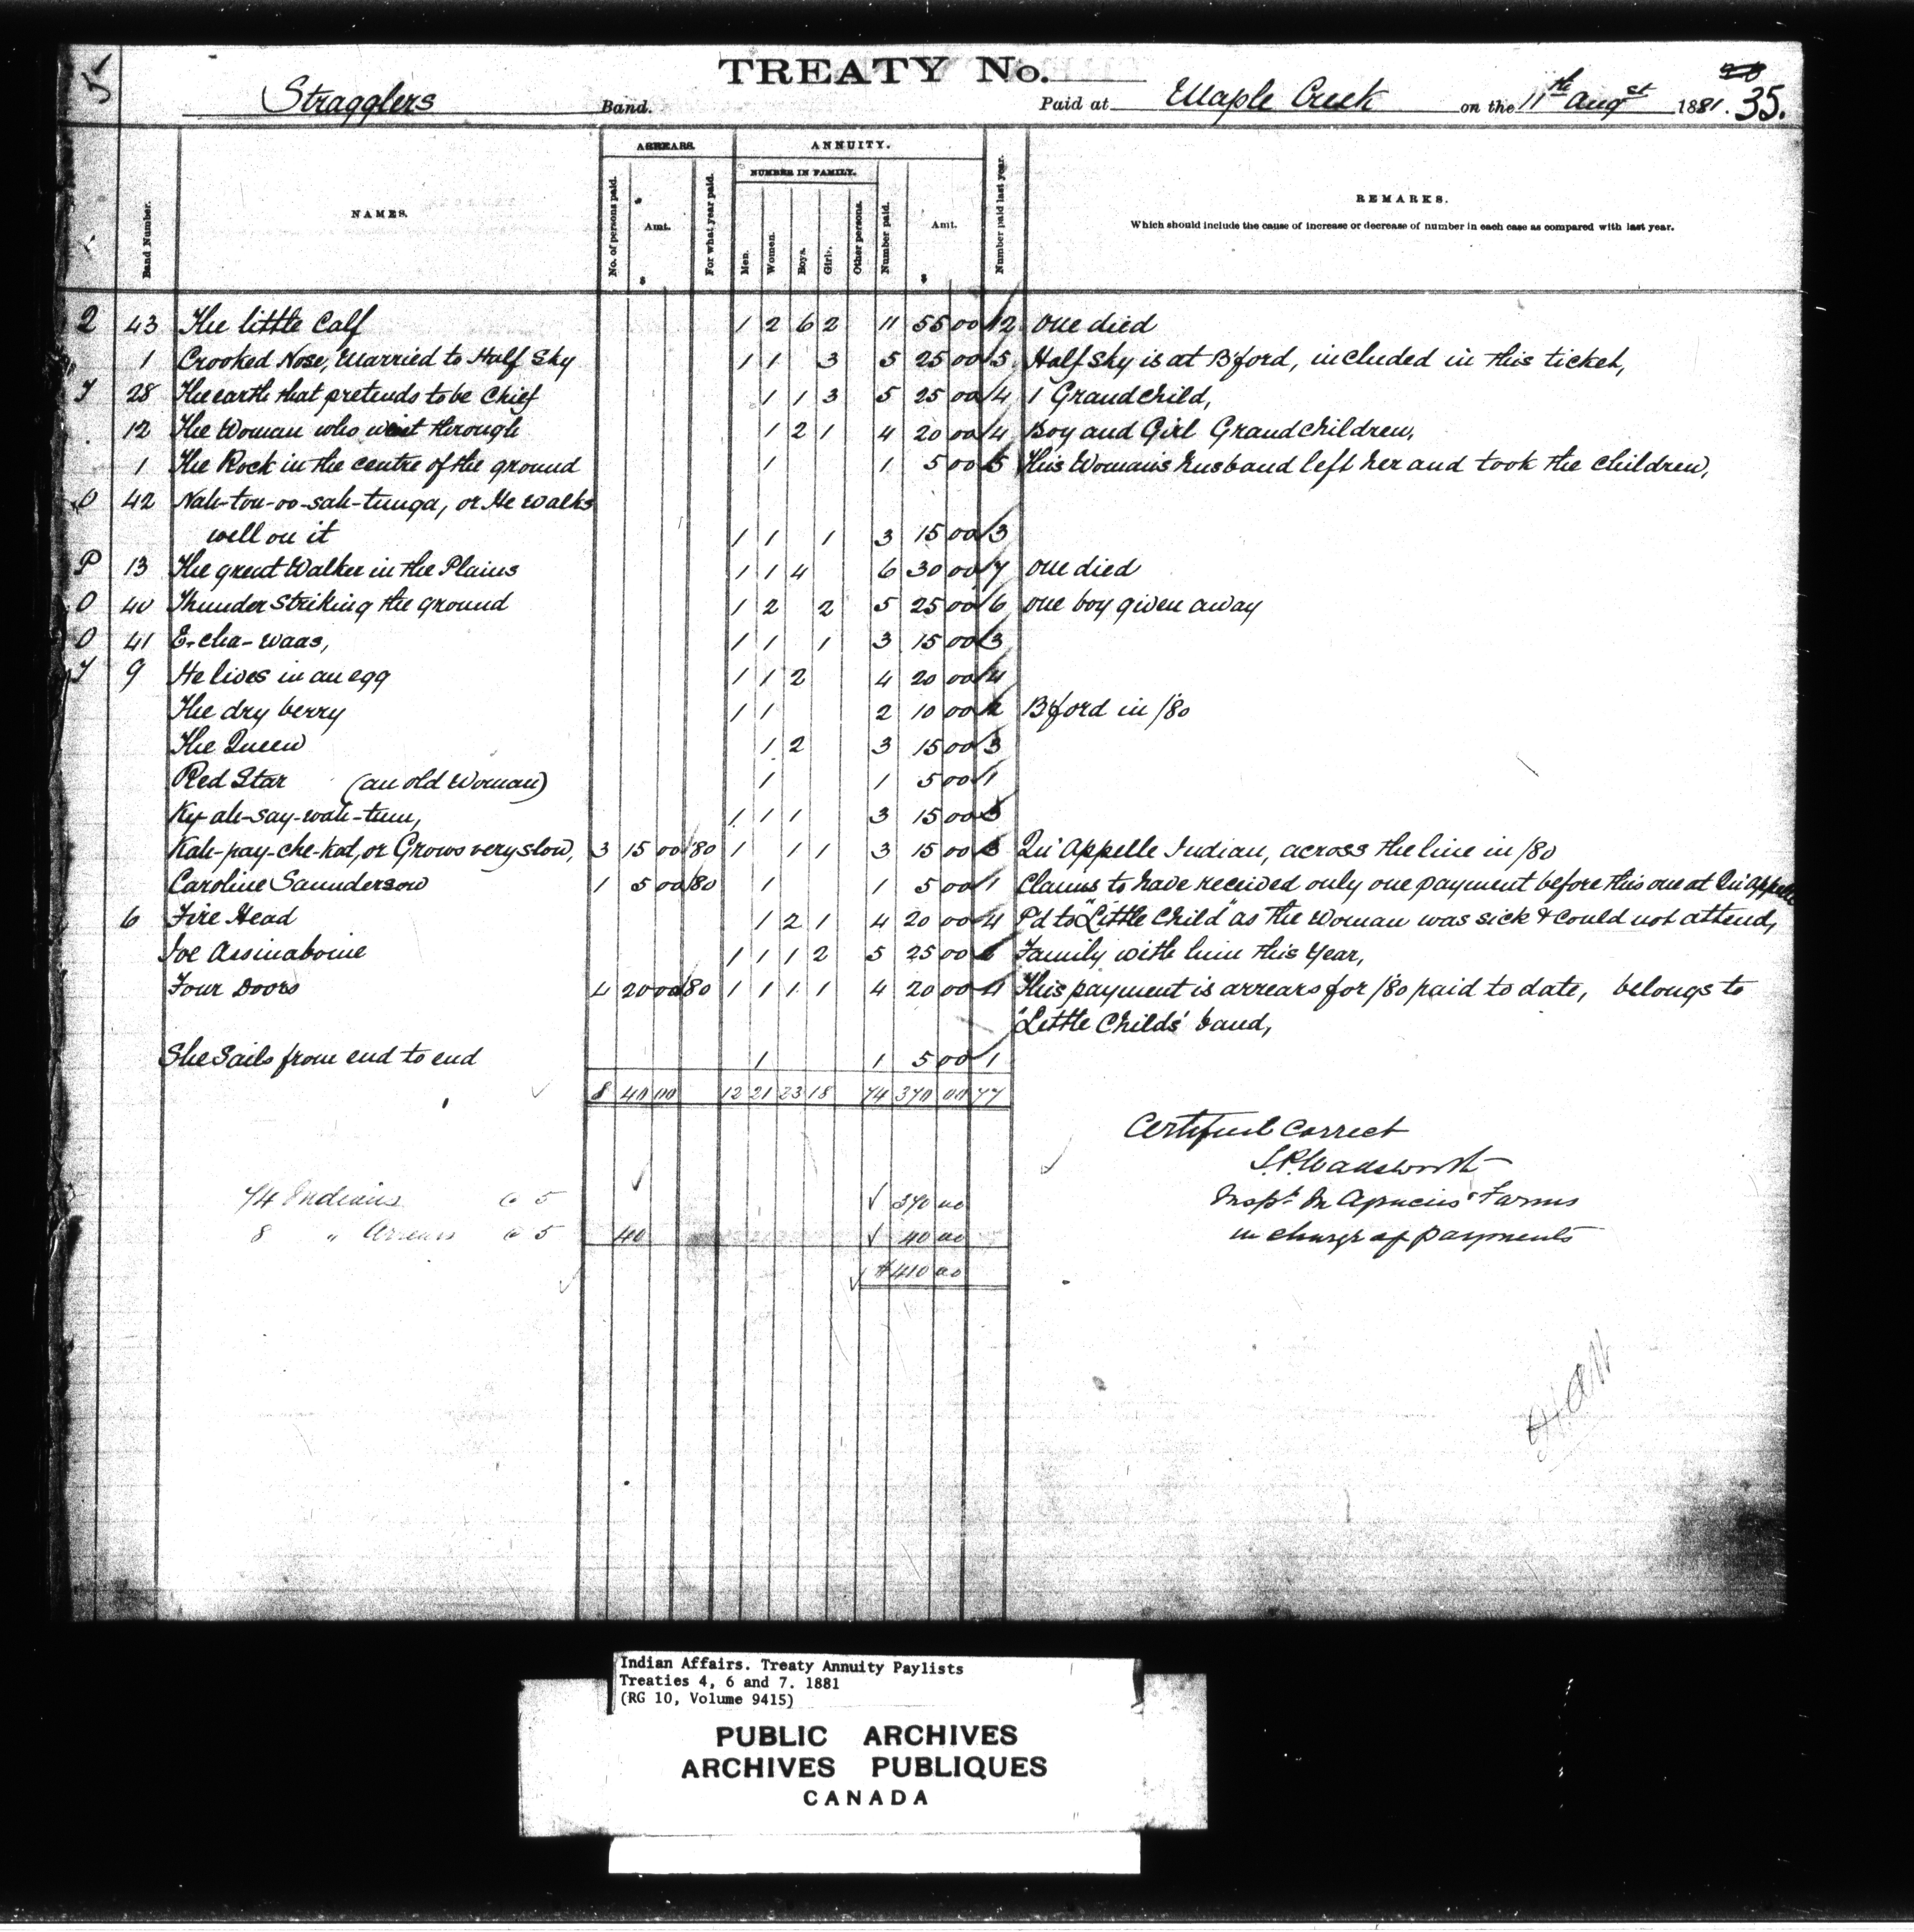 5
TREATY No.
Stragglers Band. Paid at Maple Creek on the 11th Augst 1881. 35.
ARREARS. ANNUITY.
NUMBER IN FAMILY.
Band Number. NAMES. No. of persons paid. Amt. For what year paid. Men. Women. Boys. Girls. Other persons. Number paid. Amt. Number paid last year. REMARKS.
Which should include the cause of increase or decrease of number in each case as compared with last year.
$ $
2 43 The little Calf 1 2 6 2 11 55 00 12 One died
1 Crooked Nose, Married to Half Sky 1 1 3 5 25 00 5 Half Sky is at Bford, included in this ticket,
28 The earth that pretends to be Chief 1 1 3 5 25 00 4 1 Grandchild,
12 The Woman who went through 1 2 1 4 20 00 4 Boy and Girl Grandchildren,
1 The Rock in the centre of the ground 1 1 5 00 5 This Woman's husband left her and took the children,
O 42 Nah-tou-oo-sah-tunga, or He walks
well on it 1 1 1 3 15 00 3
P 13 The great Walker in the Plains 1 1 4 6 30 00 7 one died
O 40 Thunder Striking the ground 1 2 2 5 25 00 6 one boy given away
O 41 E-cha-waas, 1 1 1 3 15 00 3
9 He lives in an egg 1 1 2 4 20 00 4
The dry berry 1 1 2 10 00 2 Bford in /80
The Queen 1 2 3 15 00 3
Red Star (an old Woman) 1 1 5 00 1
Ky-ah-say-wah-tum, 1 1 1 3 15 00 3
Kah-pay-che-kat, or Grows very slow, 3 15 00 /80 1 1 1 3 15 00 3 Qu'Appelle Indian, across the line in /80
Caroline Saunderson 1 5 00 /80 1 1 5 00 1 Claims to have received only one payment before this one at Qu'Appelle
6 Fire Head 1 2 1 4 20 00 4 Pd to "Little Child" as the Woman was sick & could not attend,
Joe Assinaboine 1 1 1 2 5 25 00 Family with him this Year,
Four Doors 4 20 00 /80 1 1 1 1 4 20 00 4 This payment is arrears for /80 paid to date, belongs to
'Little Childs' band,
She Sails from end to end 1 1 5 00 1
8 40 00 12 21 23 18 74 370 00 77
Certified Correct
Wadsworth
74 Indians @ 5 370 00 Inspt In Agencies & Farms
8 " Arrears @ 5 40 40 00 in charge of payments
$410 00
Indian Affairs. Treaty Annuity Paylists
Treaties 4, 6 and 7. 1881
(RG 10, Volume 9415)
PUBLIC ARCHIVES
ARCHIVES PUBLIQUES
CANADA